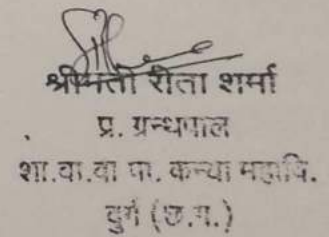 श्रीमती रीता शर्मा
प्र. ग्रन्थपाल
शा.वा.वा पा. कन्या महावि.
दुर्ग (छ.ग.)